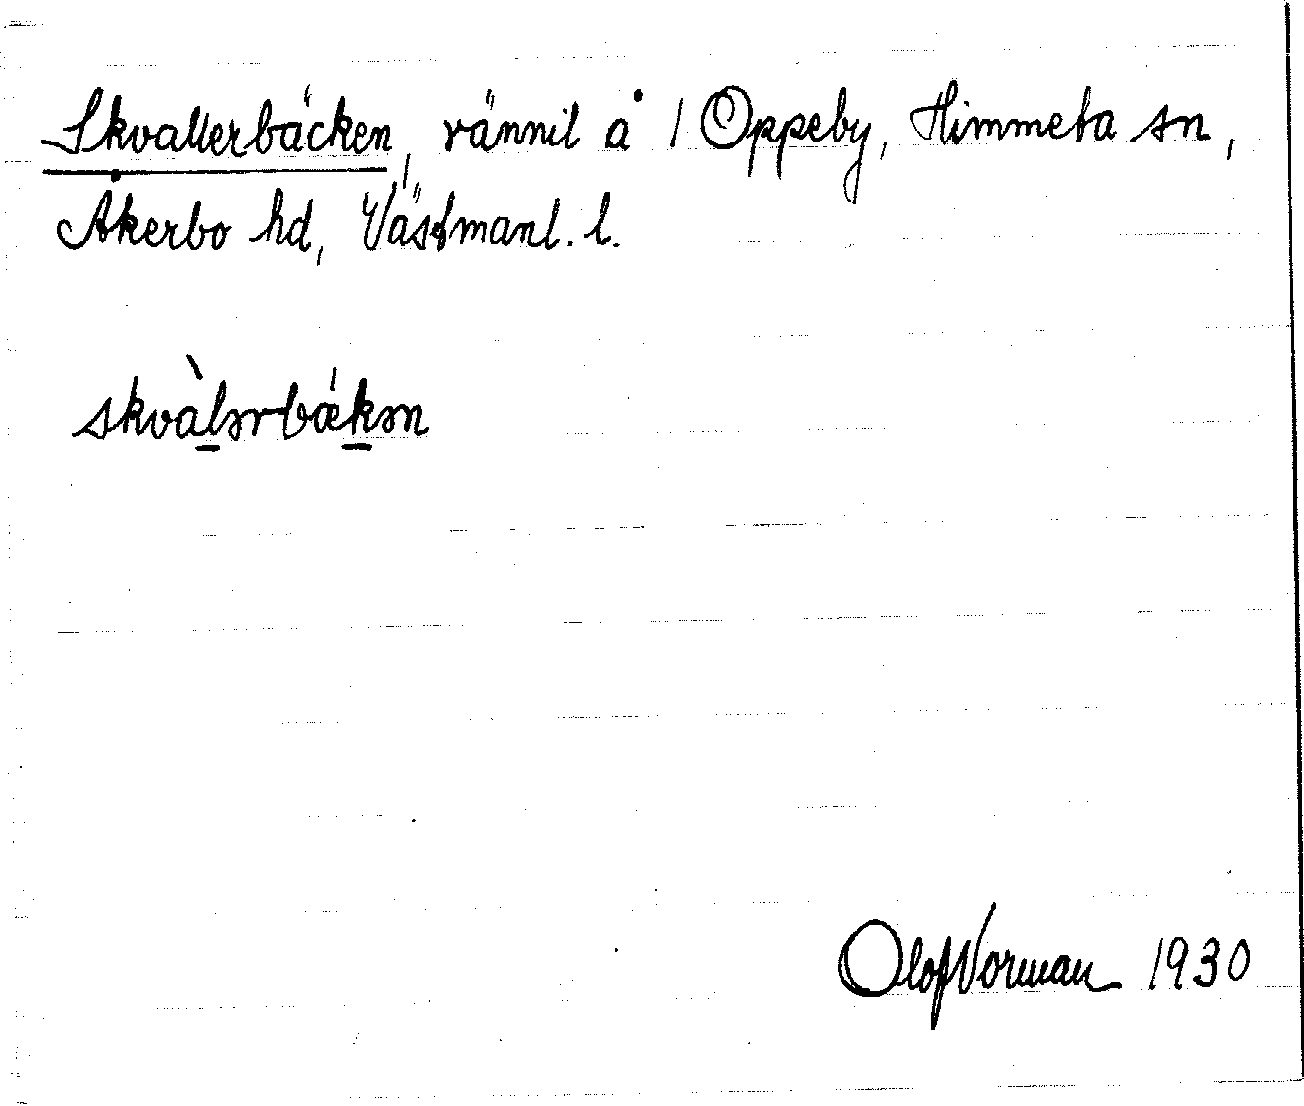 Skvallerbäcken, rännil å 1 Oppeby, Himmeta sn,
Åkerbo hd, Västmanl. l.
skvàlərbækən
Olof Norman 1930